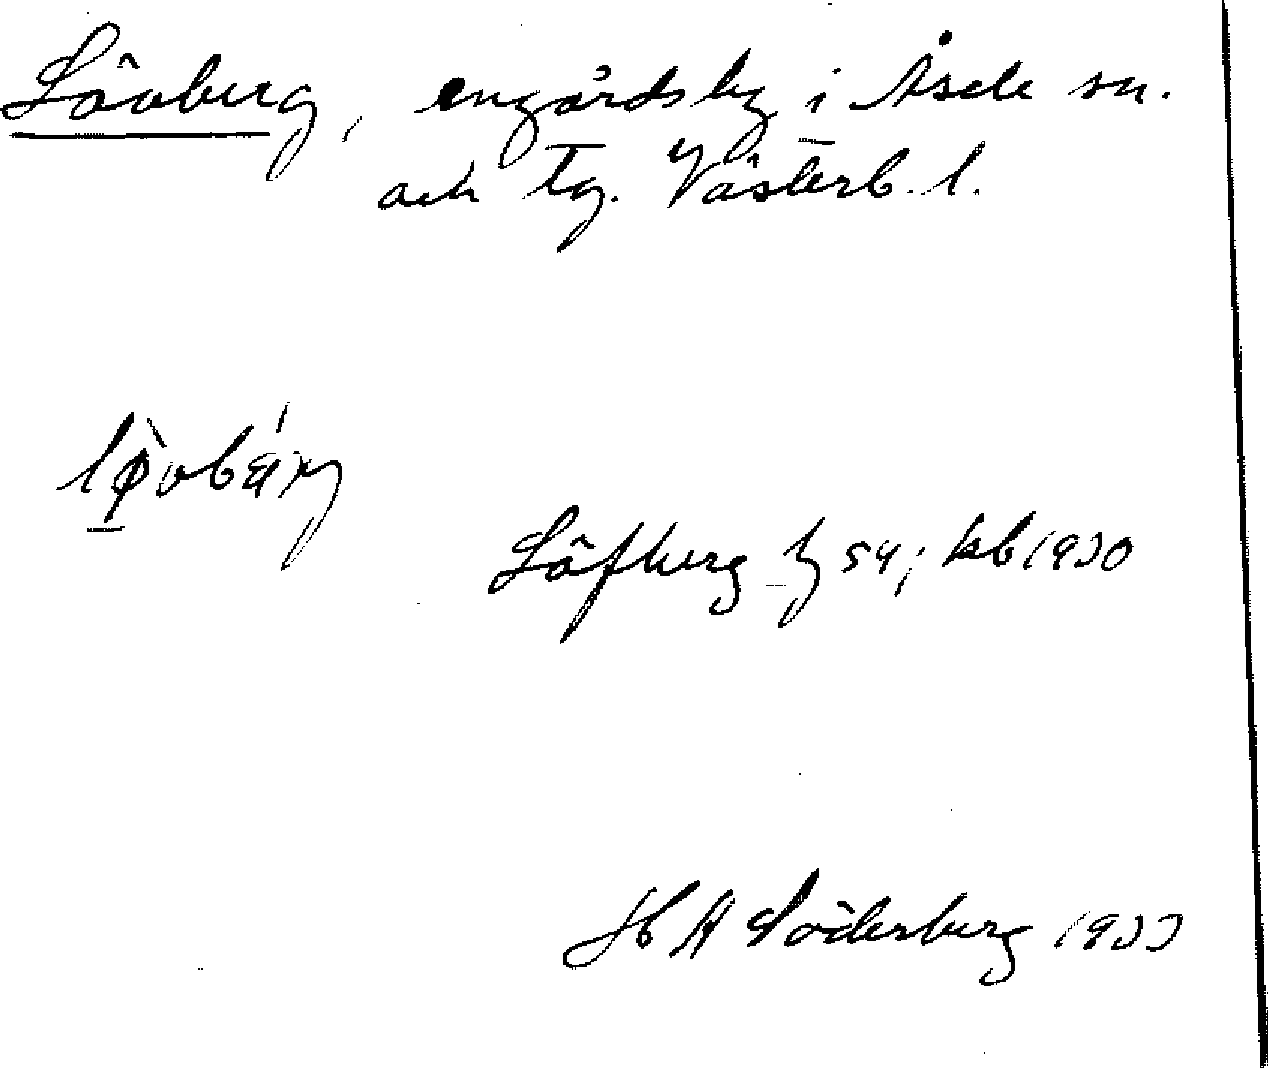 Lövberg, engårdsby i Åsele sn.
och tg. Västerb. l.
Löfberg
kb 1930
H A Söderberg 1933